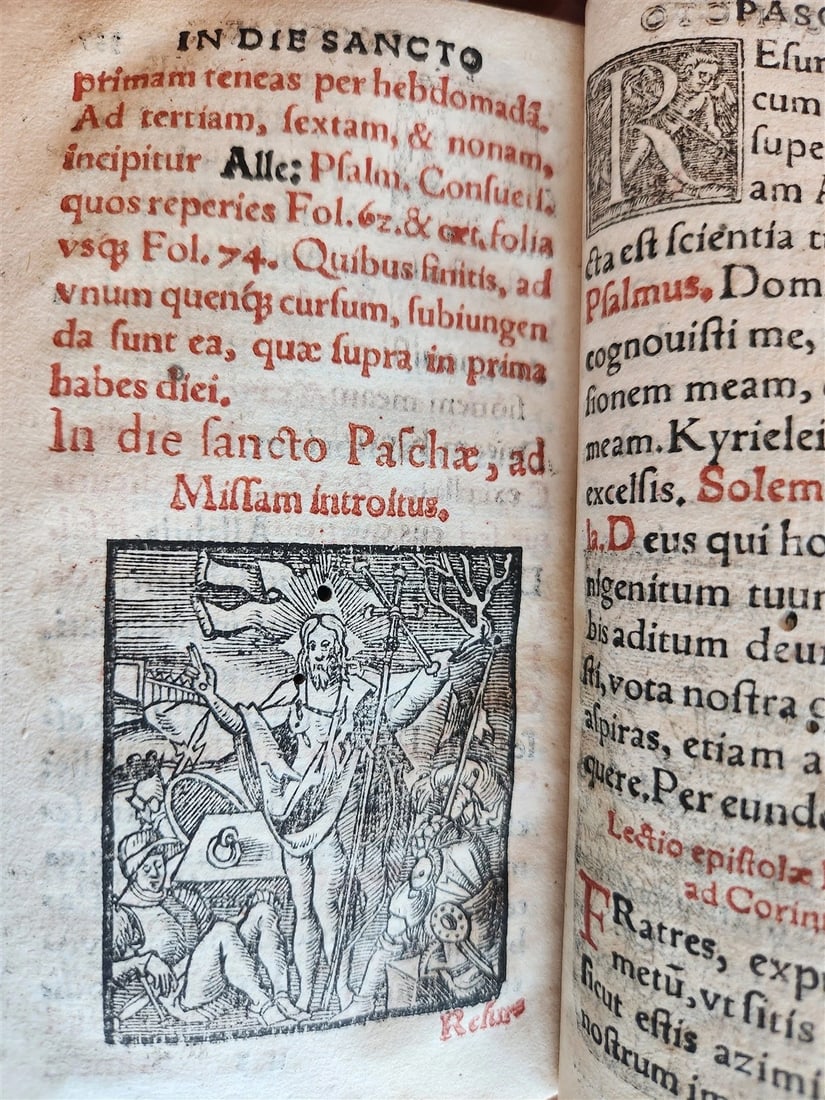 IN DIE SANCTO
primam teneas per hebdomadã.
Ad tertiam, ſextam, & nonam,
incipitur Alle: Pſalm. Conſueti.
quos reperies Fol. 62. & cæt. folia
vſqꝫ Fol. 74. Quibus finitis, ad
vnum quenqꝫ curſum, ſubiungen
da ſunt ea, quæ ſupra in prima
habes diei.
In die ſancto Paſchæ, ad
Miſſam introitus.
Reſur
PASC
REſur
cum
ſupe
am A
cta eſt ſcientia t
Pſalmus. Dom
cognouiſti me,
ſionem meam,
meam. Kyrielei
excelſis. Solem
la. Deus qui ho
nigenitum tuum
bis aditum deui
ſti, vota noſtra
aſpiras, etiam a
quere. Per eunde
Lectio epiſtolæ
ad Corin
FRatres, exp
metū, vt ſitis
ſicut eſtis azimi
noſtrum im